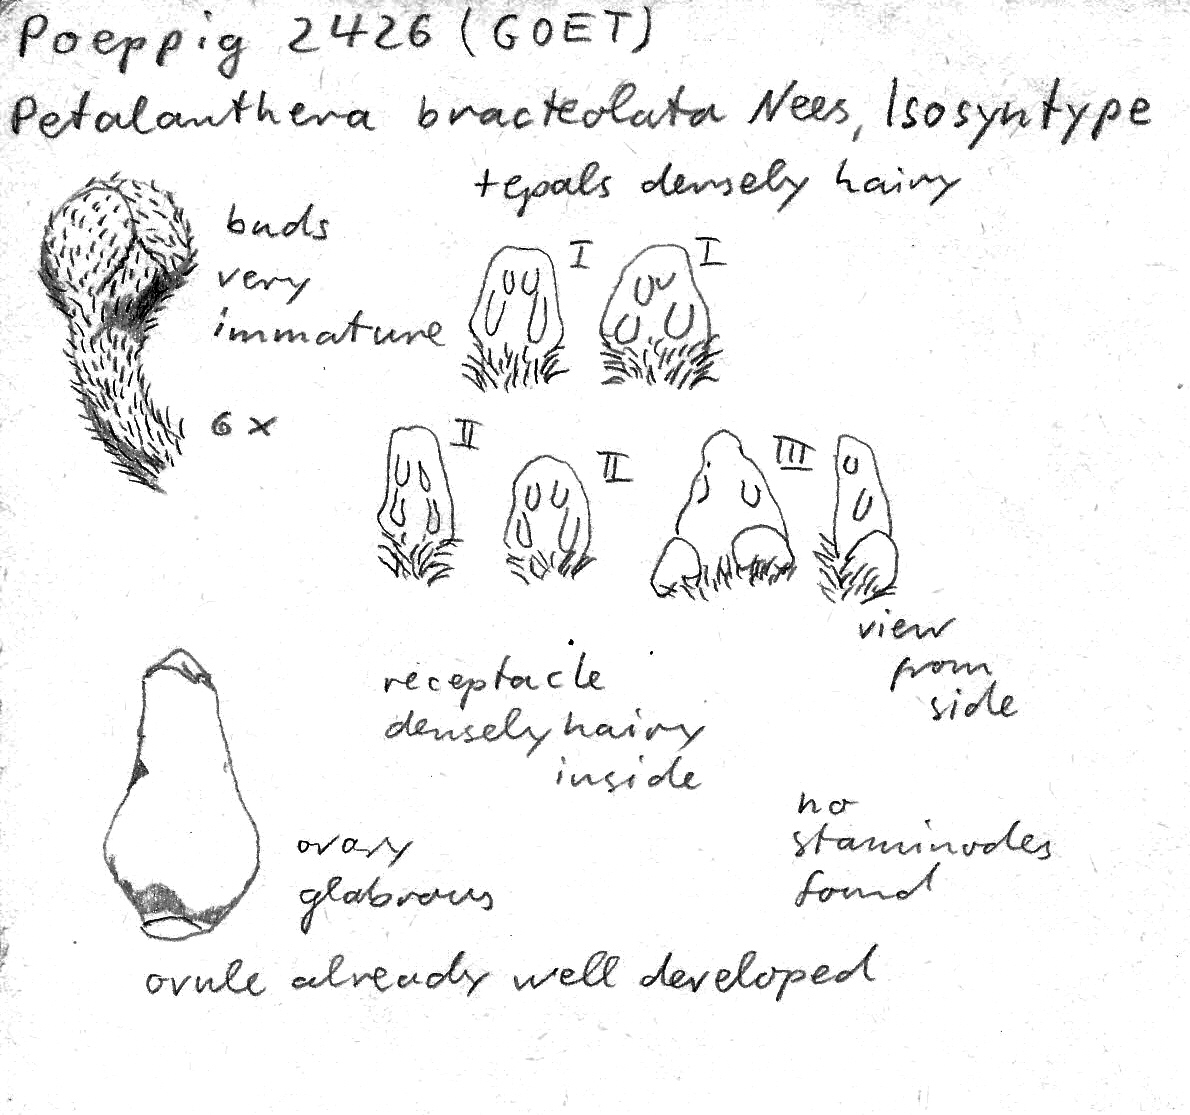 Poeppig 2426 (GOET)
Petalanthera bracteolata Nees, Isosyntype
tepals densely hairy
buds
very
immature
6 x
I
I
II
II
III
view
from
side
receptacle
densely hairy
inside
no
staminodes
found
ovary
glabrous
ovule already well developed